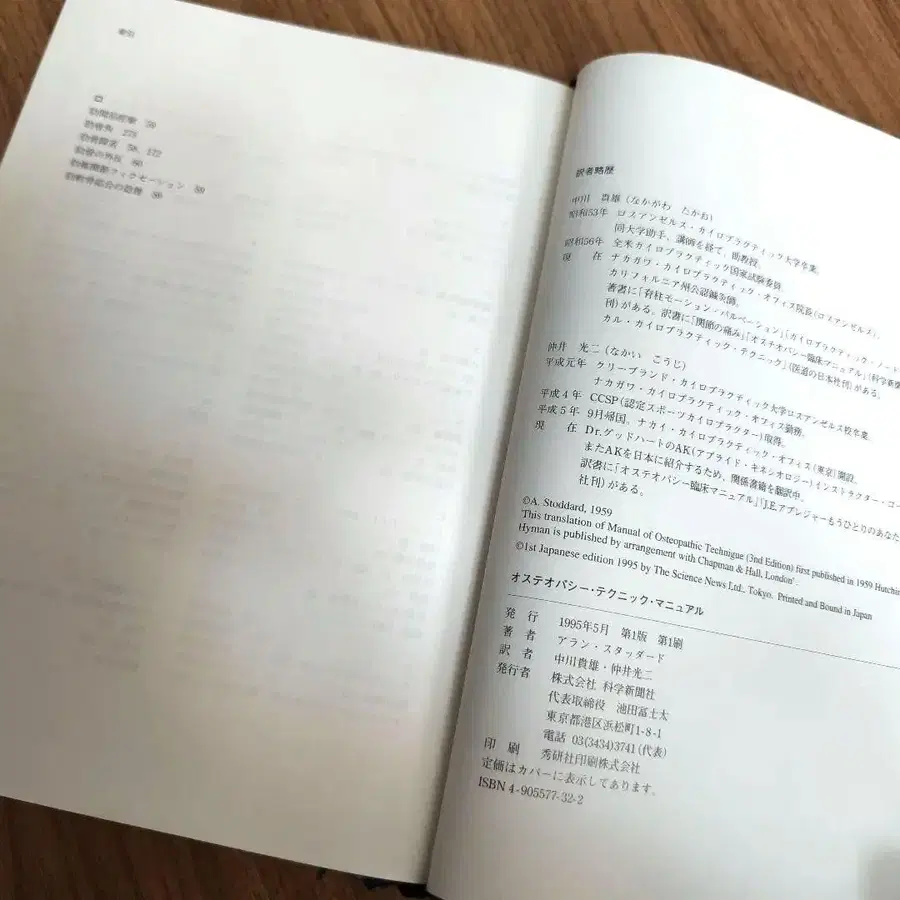 索引
ロ
肋間筋痙攣 59
肋骨角 273
肋骨障害 58, 172
肋骨の外反 60
肋椎関節フィクセーション 59
訳者略歴
中川 貴雄(なかがわ たかお)
昭和53年 ロスアンゼルス・カイロプラクティック大学卒業。
同大学助手、講師を経て、助教授。
昭和56年 全米カイロプラクティック国家試験委員
現 在 ナカガワ・カイロプラクティック・オフィス院長(ロスアンゼルス)。
カリフォルニア州公認鍼灸師。
著書に「脊柱モーション・パルペーション」「カイロプラクティック・ノート
刊)がある。訳書に「関節の痛み」「オステオパシー臨床マニュアル」(科学新聞
カル・カイロプラクティック・テクニック」(医道の日本社刊)がある。
仲井 光二(なかい こうじ)
平成元年 クリーブランド・カイロプラクティック大学ロスアンゼルス校卒業。
ナカガワ・カイロプラクティック・オフィス勤務。
平成4年 CCSP(認定スポーツカイロプラクター)取得。
平成5年 9月帰国、ナカイ・カイロプラクティック・オフィス(東京)開設。
現 在 Dr.グッドハートのAK(アプライド・キネシオロジー)インストラクター・コー
またAKを日本に紹介するため、関係書籍を翻訳中。
訳書に「オステオパシー臨床マニュアル」「J.E.アプレジャーもうひとりのあなた
社刊)がある。
©A. Stoddard, 1959
This translation of Manual of Osteopathic Technigue (3nd Edition) first published in 1959 Hutchin
Hyman is published by arrangement with Chapman & Hall, London'.
©1st Japanese edition 1995 by The Science News Ltd., Tokyo. Printed and Bound in Japan
オステオパシー・テクニック・マニュアル
発 行 1995年5月 第1版 第1刷
著 者 アラン・スタッダード
訳 者 中川貴雄・仲井光二
発行者 株式会社 科学新聞社
代表取締役 池田冨士太
東京都港区浜松町1-8-1
電話 03(3434)3741(代表)
印 刷 秀研社印刷株式会社
定価はカバーに表示してあります。
ISBN 4-905577-32-2